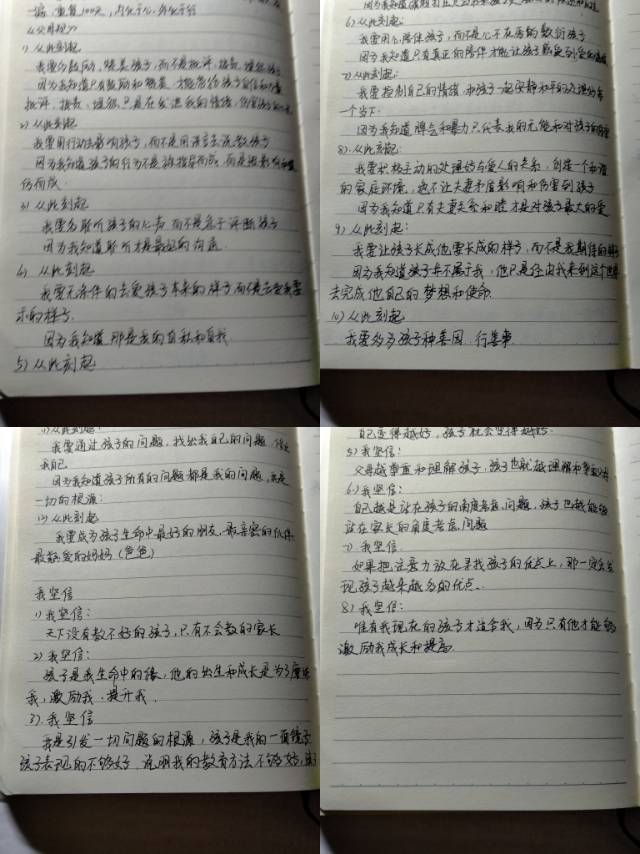 一遍,重复100天
1) 从此刻起
我要多鼓励,赞美孩子,而不是批评,指责,埋怨孩子
因为我知道只有鼓励和赞美,才能带给孩子自信和力量
批评,指责,埋怨只是在发泄我的情绪,伤害孩子的心灵
2) 从此刻起
我要用行动去影响孩子,而不是用语言去说教孩子
因为我知道孩子的行为不是被指导而成,而是被影响和模
仿而成
3) 从此刻起
我要多聆听孩子的心声,而不是急于评断孩子
因为我知道聆听才是最好的沟通.
4) 从此刻起
我要无条件的去爱孩子本来的样子,而不是去爱我要
求的样子.
因为我知道那是我的自私和自我
5) 从此刻起
6) 从此刻起:
我要用心陪伴孩子,而不是心不在焉的敷衍孩子
因为我知道只有真正的陪伴才能让孩子感受到爱的温暖
7) 从此刻起:
我要控制自己的情绪,和孩子一起安静和平的处理好每
一个当下.
因为我知道脾气和暴力只代表我的无能和对孩子的伤害
8) 从此刻起:
我要积极主动的处理好与爱人的关系,创造一个和谐
的家庭环境,绝不让夫妻矛盾影响和伤害到孩子
因为我知道只有夫妻关系和睦才是对孩子最大的爱
9) 从此刻起:
我要让孩子长成他要长成的样子,而不是我期待的样子
因为我知道孩子并不属于我,他只是经由我来到这个世界
去完成他自己的梦想和使命.
10) 从此刻起
我要多为孩子种善因,行善事
11) 从此刻起:
我要通过孩子的问题,找出我自己的问题,修正
我自己.
因为我知道孩子所有的问题都是我的问题,我是
一切的根源:
12) 从此刻起
我要成为孩子生命中最好的朋友,最亲密的伙伴
最能爱的妈妈(爸爸)
我坚信
1) 我坚信:
天下没有教不好的孩子,只有不会教的家长
2) 我坚信:
孩子是我生命中的缘,他的出生和成长是为了磨练
我,激励我,提升我.
3) 我坚信
我是引发一切问题的根源,孩子是我的一面镜子
孩子表现的不够好,说明我的教育方法不够好,
自己变得越好,孩子就会变得越好.
5) 我坚信:
父母越尊重和理解孩子,孩子也就越理解和尊重父母
6) 我坚信:
自己越是站在孩子的角度考虑问题,孩子也越能够
站在家长的角度考虑问题
7) 我坚信.
如果把注意力放在寻找孩子的优点上,那一定会发
现孩子越来越多的优点.
8) 我坚信:
唯有我现在的孩子才适合我,因为只有他才能够
激励我成长和提高.